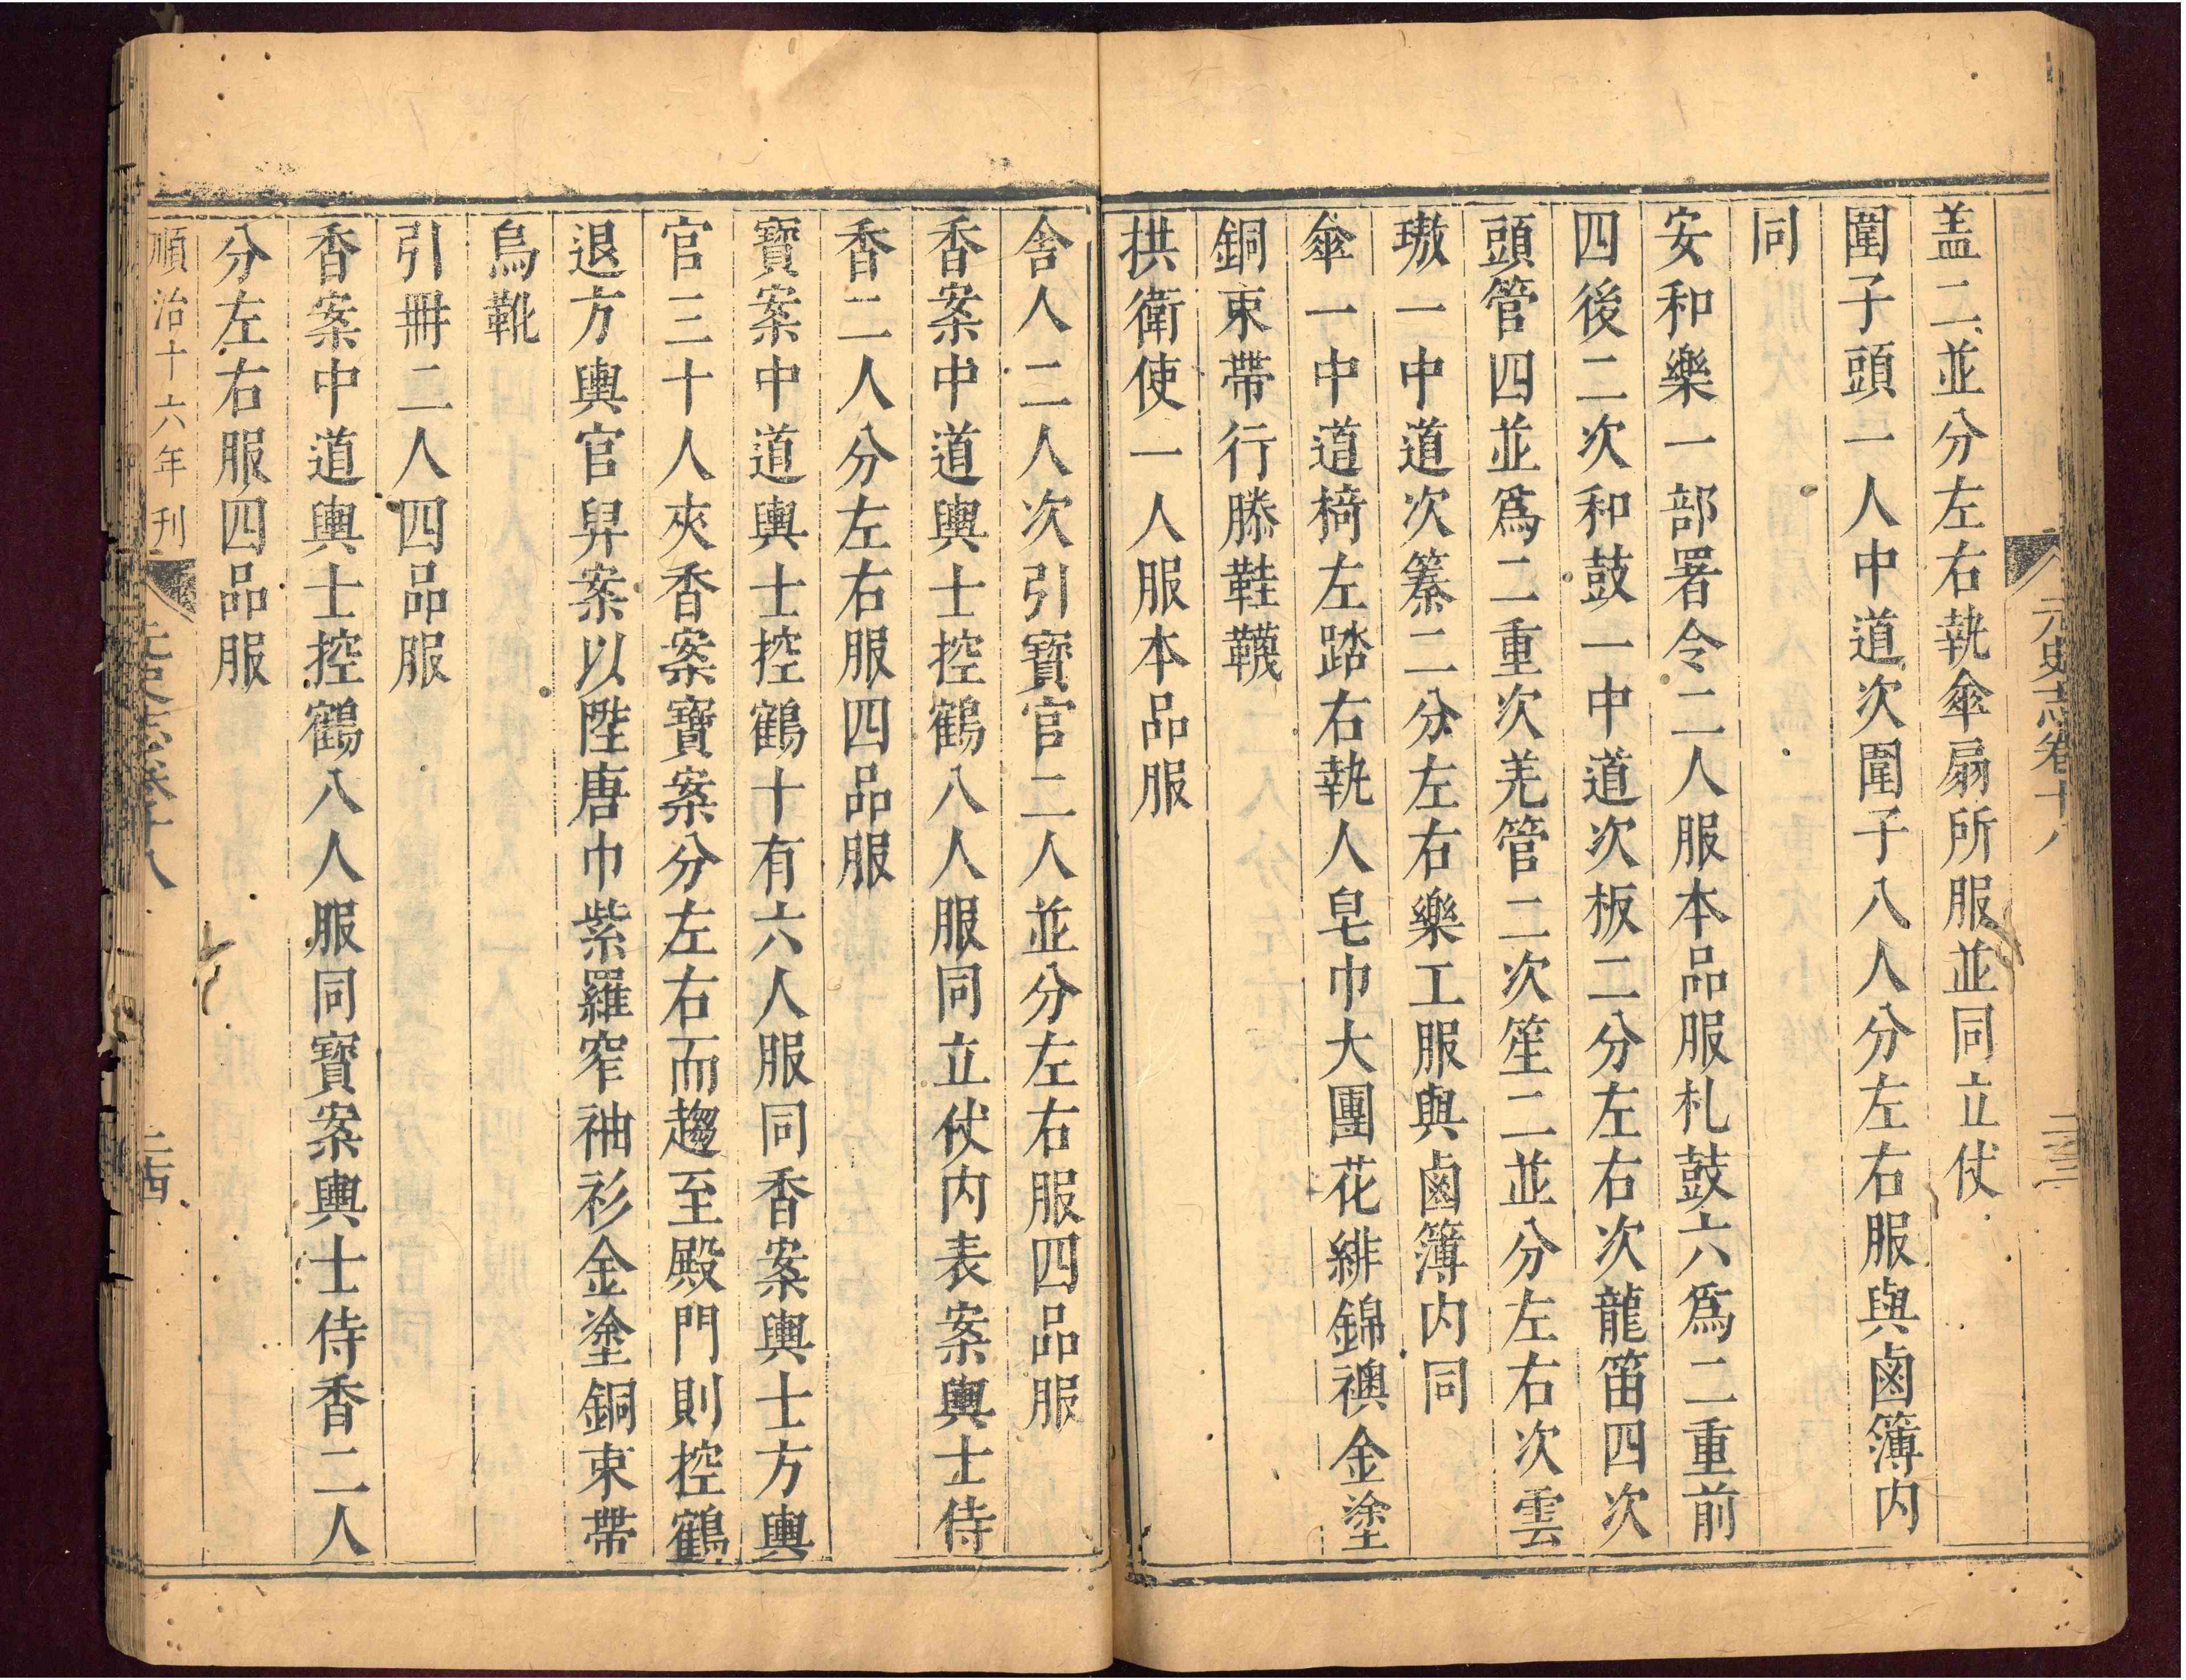 元史志卷十八
盖二並分左右執傘扇所服並同立仗
圍子頭一人中道次圍子八人分左右服與鹵簿内
同
安和樂一部署令二人服本品服札鼓六爲二重前
四後二次和鼓一中道次板二分左右次龍笛四次
頭管四並爲二重次羌管二次笙二並分左右次雲
璈一中道次䈢二分左右樂工服與鹵簿内同
傘一中道椅左踏右執人皂巾大團花緋錦襖金塗
銅束帶行縢鞋韈
拱衛使一人服本品服
舎人二人次引寶官二人並分左右服四品服
香案中道輿士控鶴八人服同立仗内表案輿士侍
香二人分左右服四品服
寶案中道輿士控鶴十有六人服同香案輿士方輿
官三十人夾香案寶案分左右而趨至殿門則控鶴
退方輿官舁案以陞唐巾紫羅窄袖衫金塗銅束帶
烏靴
引冊二人四品服
香案中道輿士控鶴八人服同寶案輿士侍香二人
分左右服四品服
順治十六年刊
卷十八